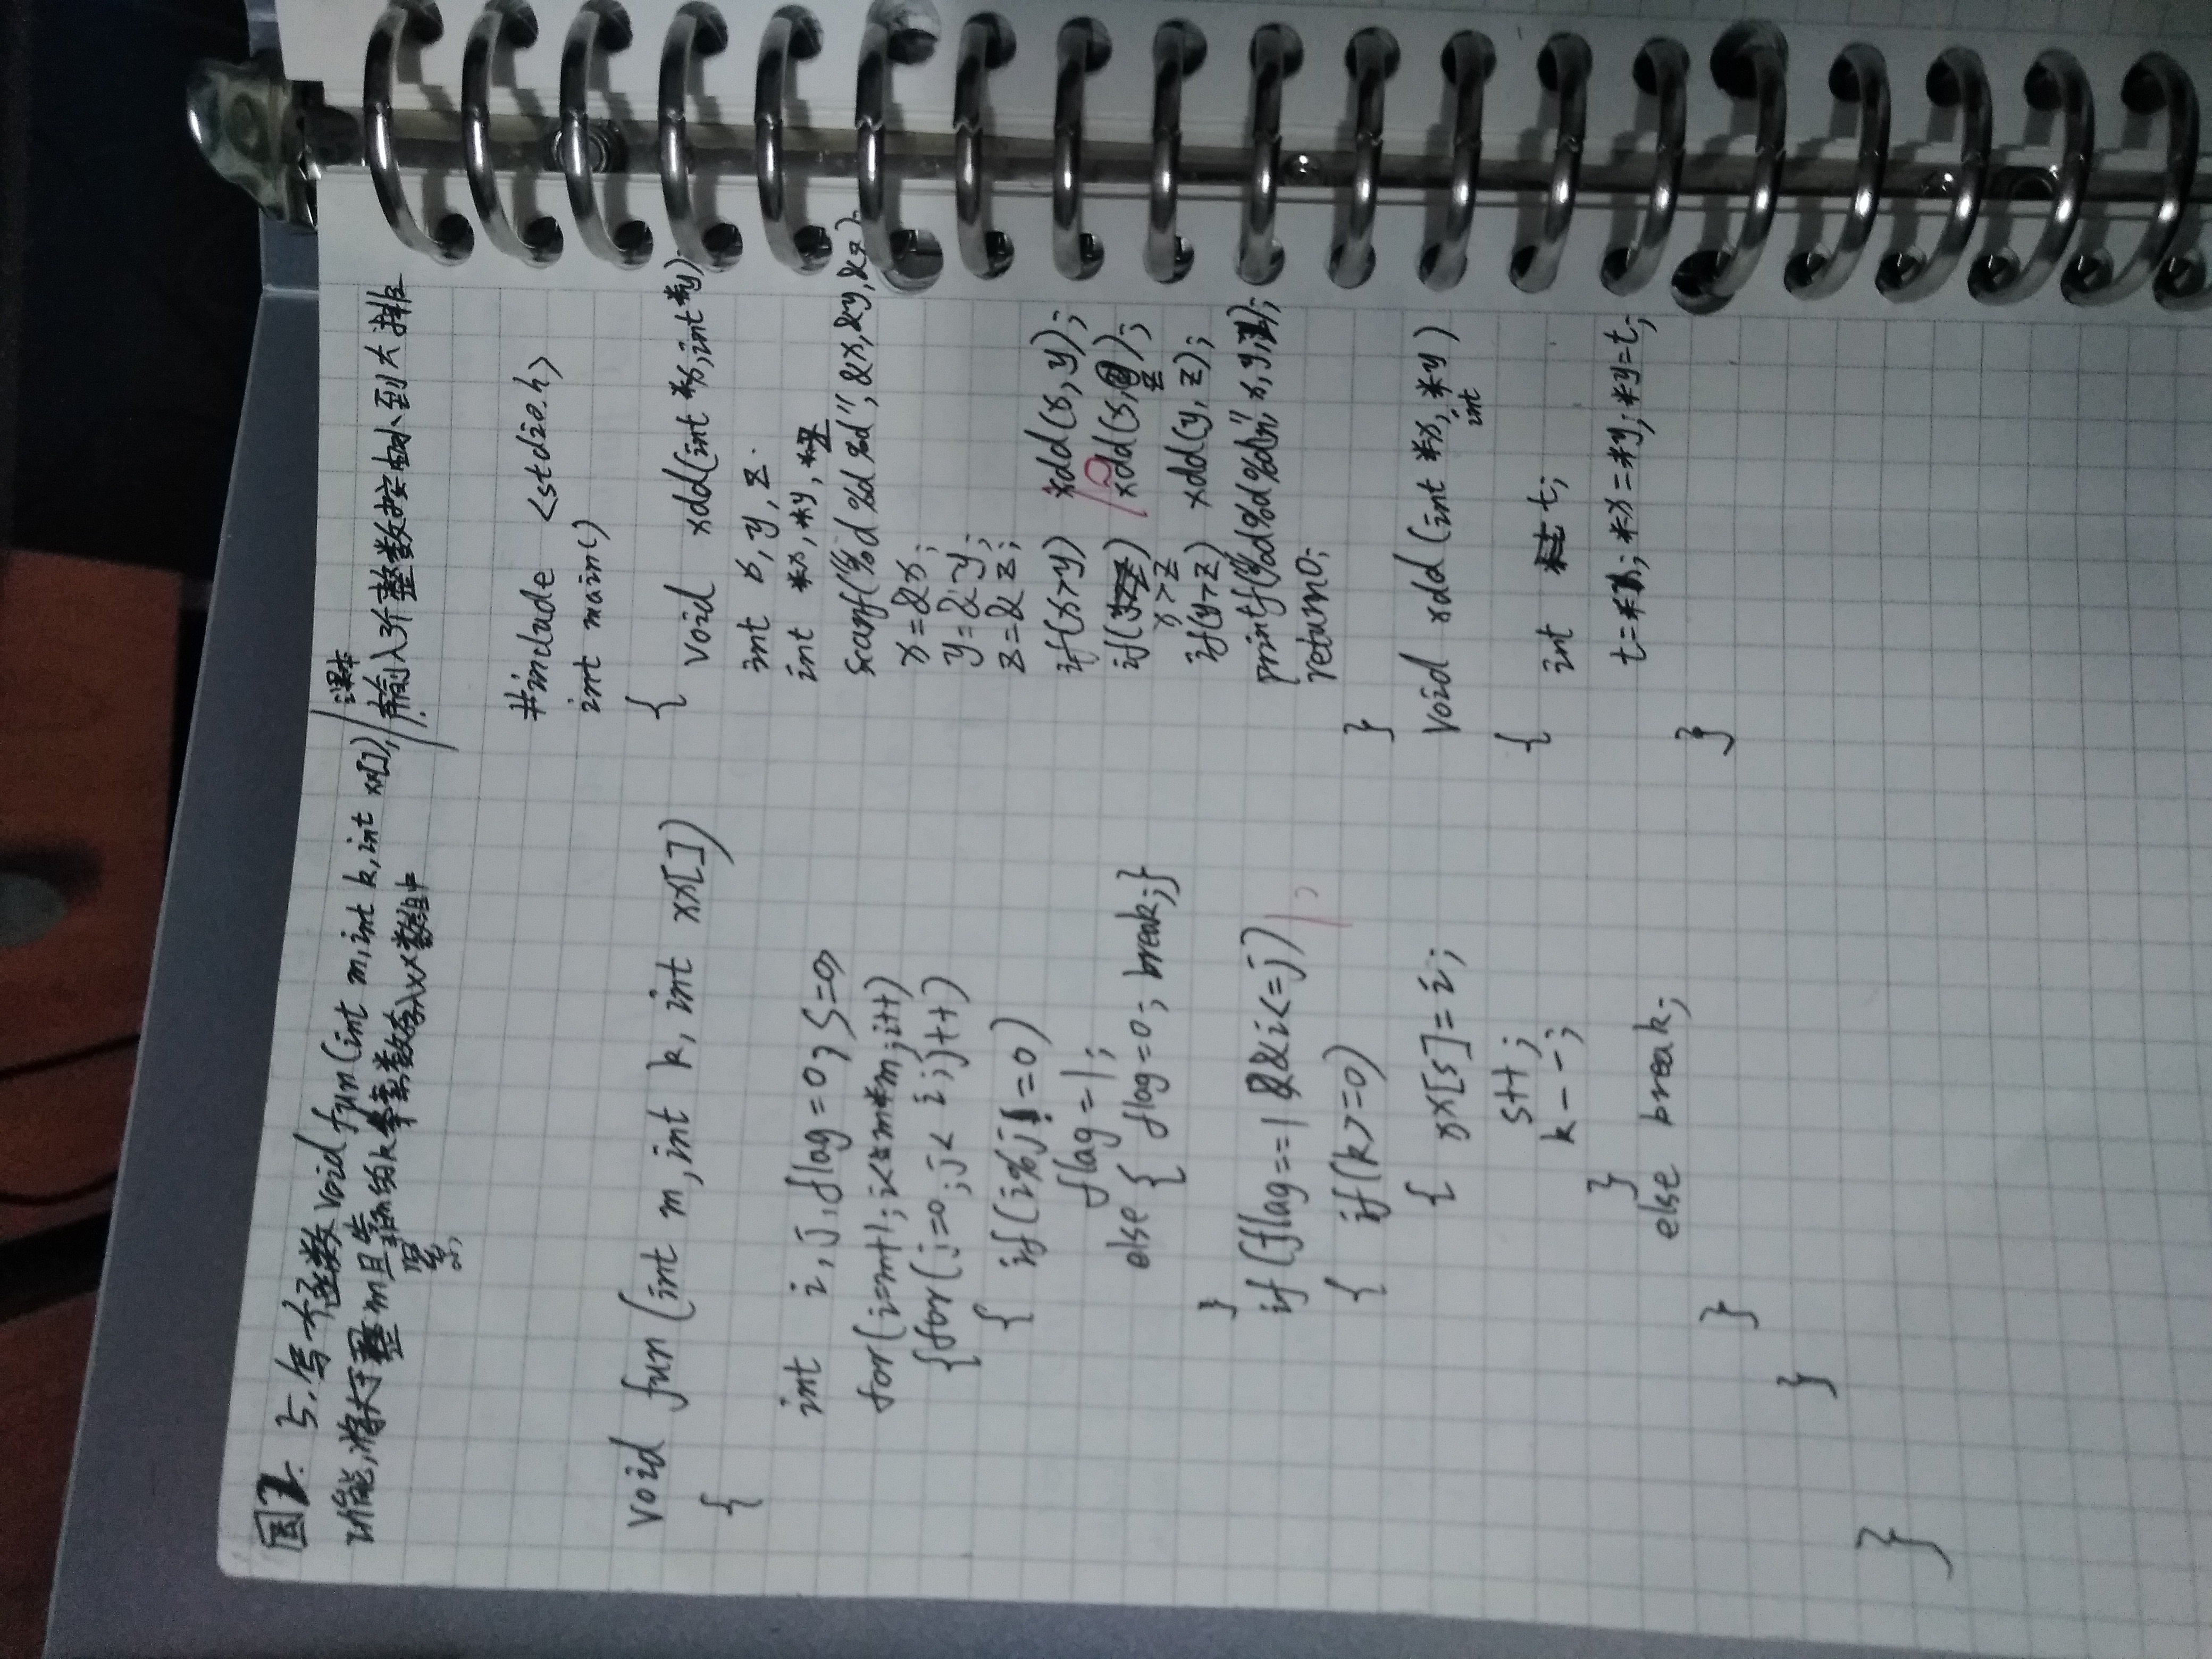 5.写个函数void fun(int m,int k,int xx[]),
功能,将大于整m且靠的k个素数存入xx数组中
紧
void fun(int m,int k,int xx[])
{
int i,j,flag=0,s=0;
for(i=m+1;i<=m*m;i++)
{for(j=0;j<i;j++)
{ if(i%j!=0)
flag=1;
else { flag=0; break;}
}
if(flag==1&&i<=j)
{ if(k>=0)
{ xx[s]=i;
s++;
k--;
}
else break;
}
}
}
课本
输入3个整数按由小到大排
#include <stdio.h>
int main()
{ void xdd(int *x,int *y)
int x,y,z.
int *x,*y,*z
scanf("%d%d%d",&x,&y,&z)
x=&x;
y=&y;
z=&z;
if(x>y) xdd(x,y);
if( ) xdd(x, );
x>z z
if(y>z) xdd(y,z);
printf("%d%d%d\n",x,y,z);
return0;
}
void xdd(int *x, *y)
int
{ int t;
t=*x; *x=*y; *y=t;
}